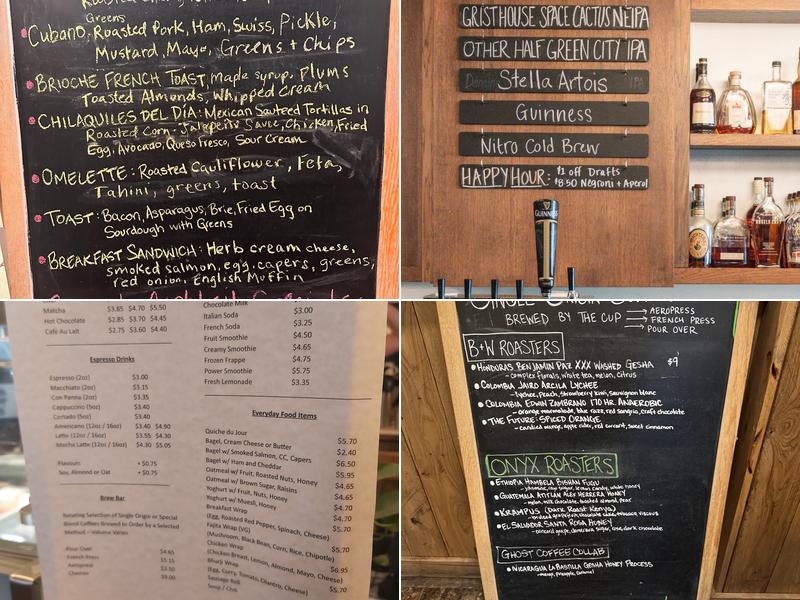 Greens
Cubano, Roasted Pork, Ham, Swiss, Pickle,
Mustard, Mayo, Greens + Chips
BRIOCHE FRENCH TOAST maple syrup, Plums
Toasted Almonds, Whipped Cream
CHILAQUILES DEL DIA: Mexican Sauteed Tortillas in
Roasted Corn-Jalapeño Sauce, Chicken, Fried
Egg, Avocado, Queso Fresco, Sour Cream
OMELETTE: Roasted Cauliflower, Feta,
Tahini, greens, toast
TOAST: Bacon, Asparagus, Brie, Fried Egg on
Sourdough with Greens
BREAKFAST SANDWICH: Herb cream cheese,
smoked salmon, egg, capers, greens,
red onion, English Muffin
GRISTHOUSE SPACE CACTUS NEIPA
OTHER HALF GREEN CITY IPA
Stella Artois
Guinness
Nitro Cold Brew
HAPPY HOUR: $1 off Drafts
$8.50 Negroni + Aperol
GUINNESS
Matcha $3.85 $4.70 $5.50
Hot Chocolate $2.85 $3.70 $4.45
Café Au Lait $2.75 $3.60 $4.40
Espresso Drinks
Espresso (2oz) $3.00
Macchiato (2oz) $3.15
Con Panna (2oz) $3.35
Cappuccino (5oz) $3.40
Cortado (5oz) $3.40
Americano (12oz / 16oz) $3.40 $4.90
Latte (12oz / 16oz) $3.55 $4.30
Mocha Latte (12oz / 16oz) $4.30 $5.05
Flavours + $0.75
Soy, Almond or Oat + $0.75
Brew Bar
Rotating Selection of Single Origin or Special
Blend Coffees Brewed to Order by a Selected
Method – Volume Varies
Pour Over $4.65
French Press $5.15
Aeropress $3.50
Chemex $9.00
Chocolate Milk
Italian Soda $3.00
French Soda $3.25
Fruit Smoothie $4.50
Creamy Smoothie $4.65
Frozen Frappe $4.75
Power Smoothie $5.75
Fresh Lemonade $3.35
Everyday Food Items
Quiche du Jour $5.70
Bagel, Cream Cheese or Butter $2.40
Bagel w/ Smoked Salmon, CC, Capers $6.50
Bagel w/ Ham and Cheddar $5.95
Oatmeal w/ Fruit, Roasted Nuts, Honey $4.65
Oatmeal w/ Brown Sugar, Raisins $4.65
Yoghurt w/ Fruit, Nuts, Honey $4.65
Yoghurt w/ Muesli, Honey $4.70
Breakfast Wrap $5.70
(Egg, Roasted Red Pepper, Spinach, Cheese)
Fajita Wrap (VG)
(Mushroom, Black Bean, Corn, Rice, Chipotle) $5.70
Chicken Wrap
(Chicken Breast, Lemon, Almond, Mayo, Cheese) $6.95
Bhurji Wrap
(Egg, Curry, Tomato, Cilantro, Cheese) $5.70
Sausage Roll
Soup / Chili
BREWED BY THE CUP → AEROPRESS
→ FRENCH PRESS
→ POUR OVER
B+W ROASTERS
HONDURAS BENJAMIN PAZ XXX WISHED GESHA $9
- complex florals, white tea, melon, citrus
COLOMBIA JAIRO ARCILA LYCHEE
- lychee, peach, strawberry kiwi, sauvignon blanc
COLOMBIA EDWIN ZAMBRANO 170 HR. ANAEROBIC
- orange marmalade, blue razz, red sangria, craft chocolate
THE FUTURE: SPICED ORANGE
- candied mango, apple cider, red currant, sweet cinnamon
ONYX ROASTERS
ETHIOPIA HAMBELA BISHAN FUGU
GUATEMALA ATITLAN ALEX HERRERA HONEY
- melon, milk chocolate, toasted almond, pear
KRAMPUS (Dark Roast Kenya)
EL SALVADOR SANTA ROSA HONEY
- concord grape, demerara sugar, rose, dark chocolate
GHOST COFFEE COLLAB
NICARAGUA LA BASTILLA GESHA HONEY PROCESS
- mango, pineapple, caramel